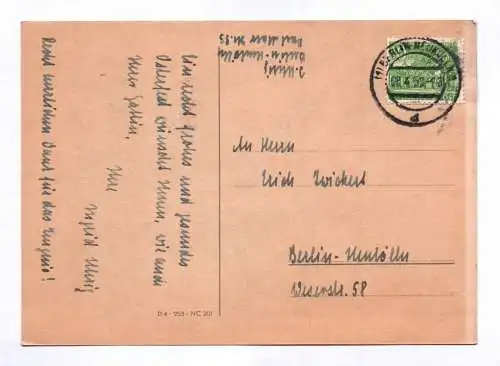 Ein recht frohes und gesundes
Osterfest wünscht Ihnen, wie auch
Ihrer Gattin,
Ihre
Ingrid
Recht herzlichen Dank für das Zeugnis!
Berlin-Neukölln
An Herrn
Erich Zwickert
Berlin-Neukölln
Weserstr. 58
BERLIN-NEUKÖLLN
d
D 4 - 953 - NC 201